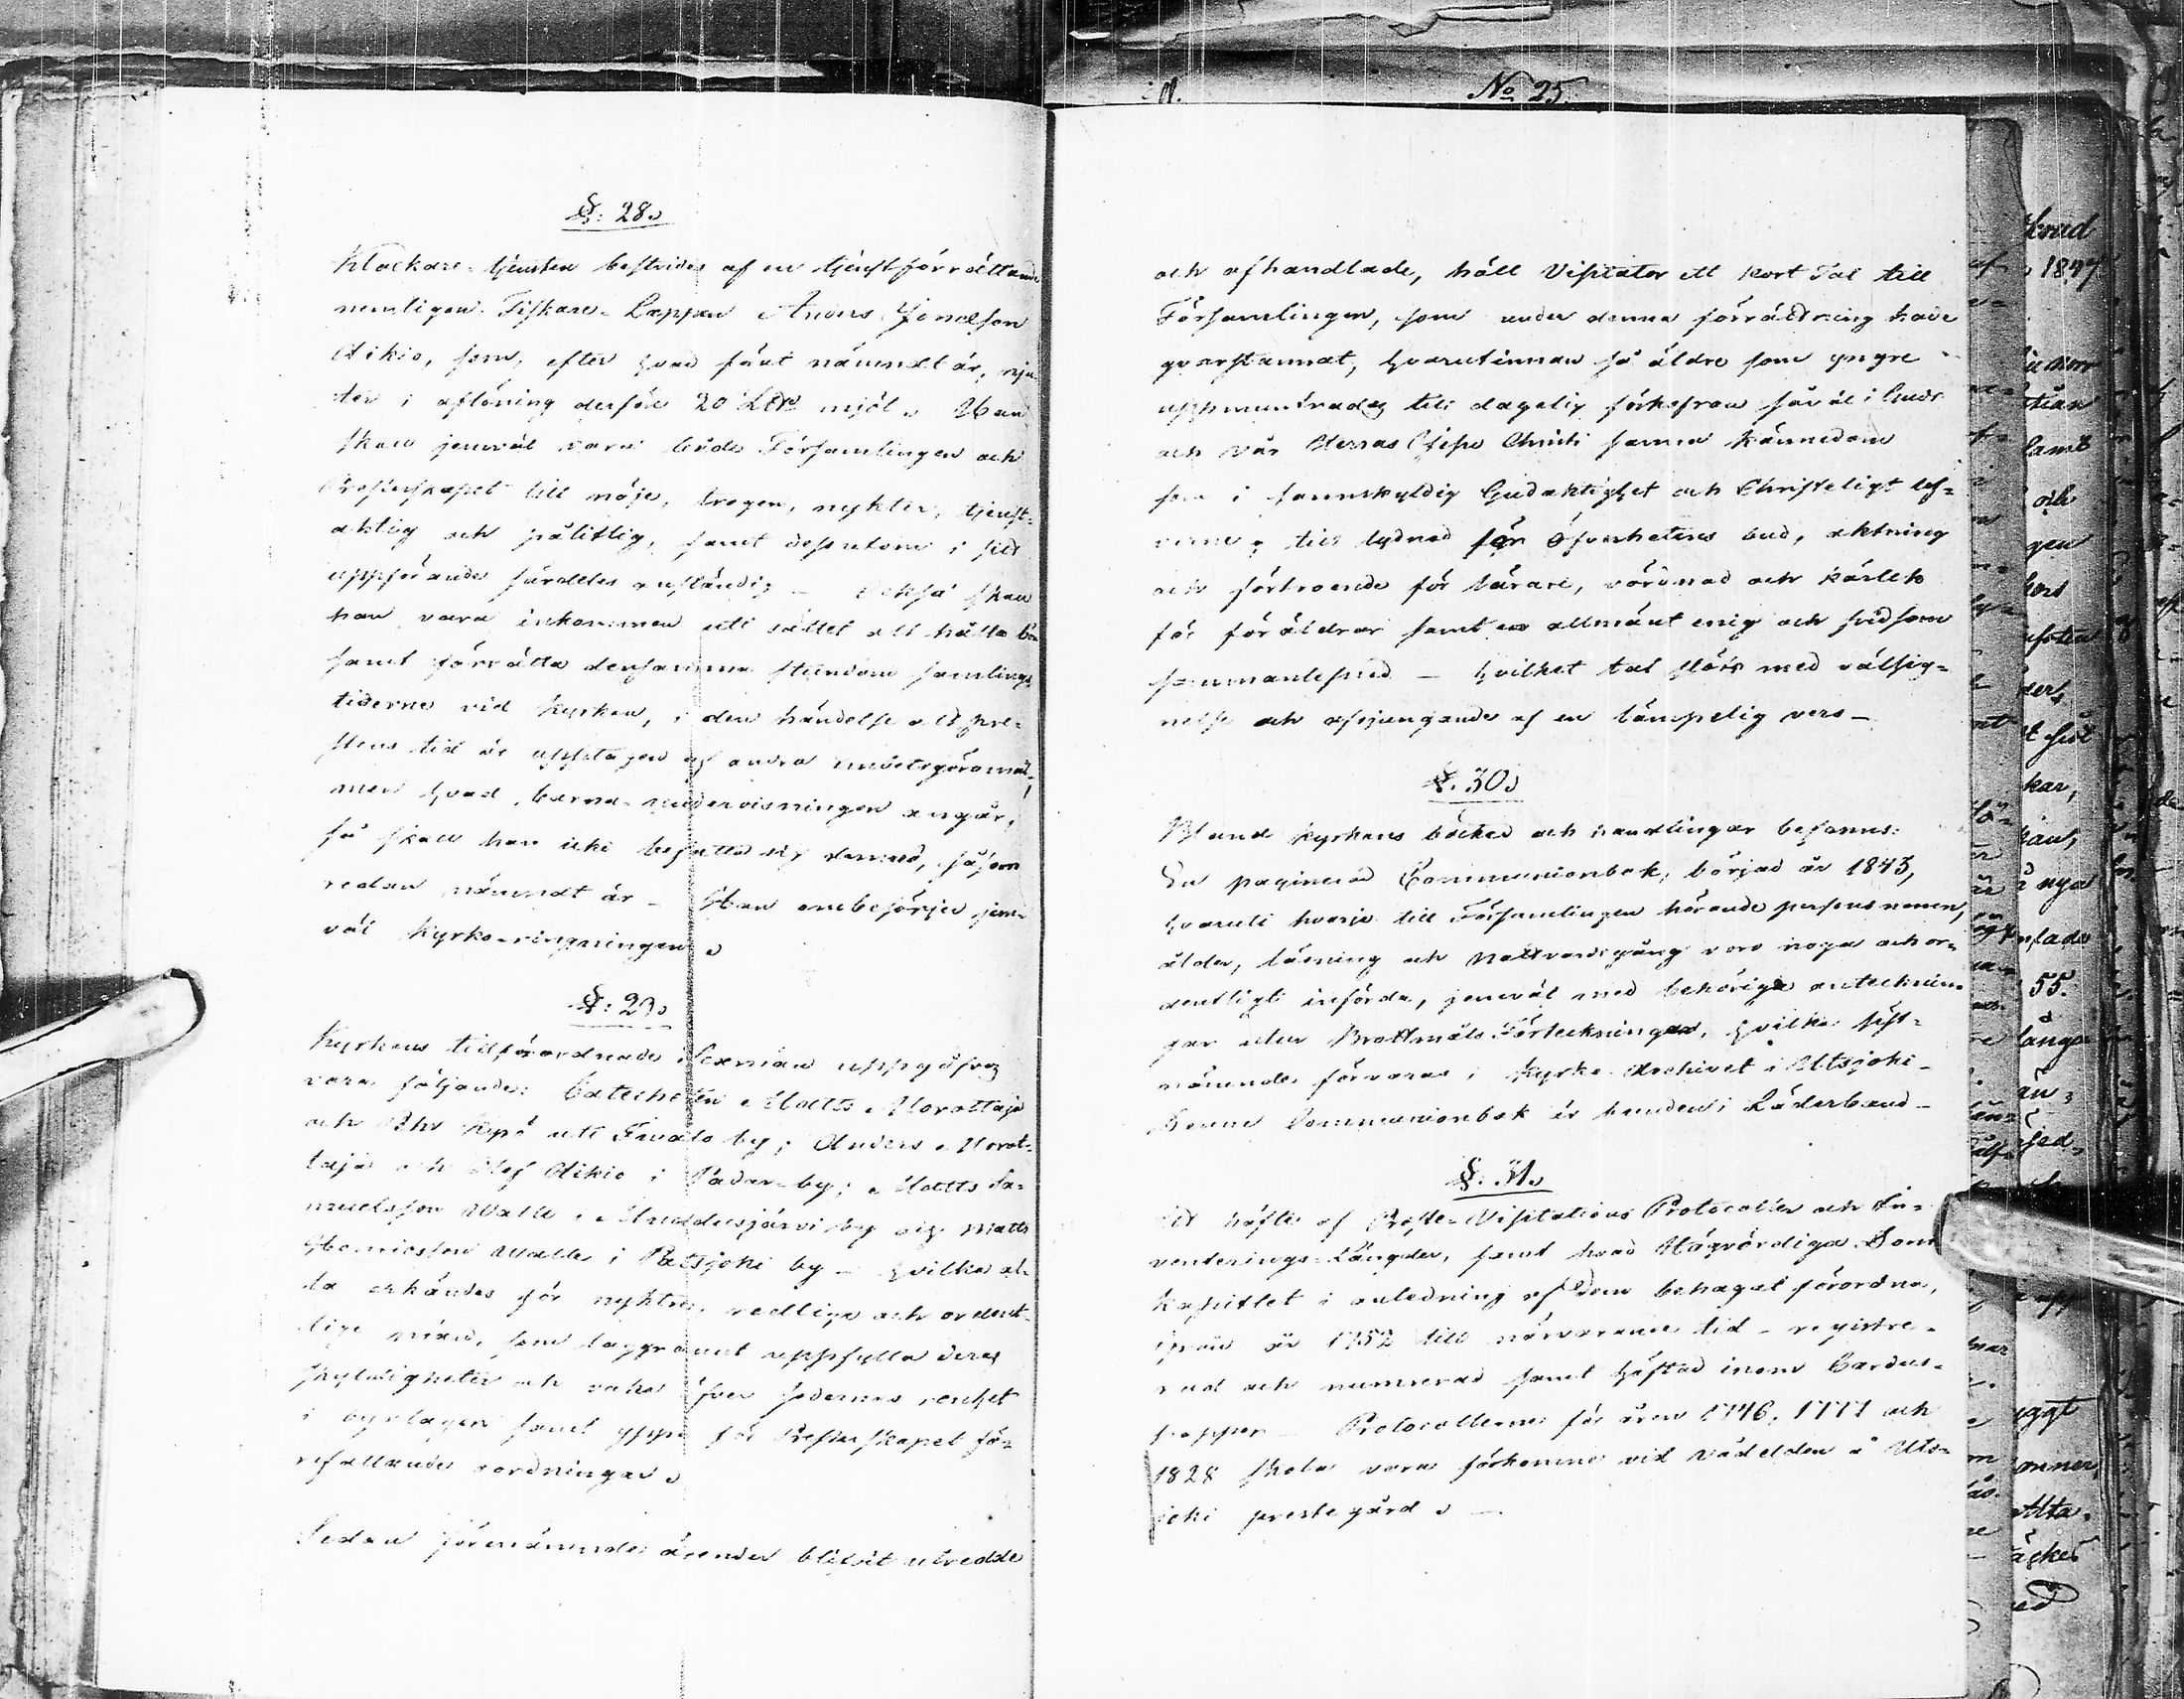 № 25.
§: 28.
Klockare-tjensten bestrides af en tjenstförrättande
nemligen Fiskare-Lappen Anders Jonasson
Aikio, som, efter hvad förut nämndt är, nju-
ter i aflöning derföre 20 mjöl. Han
skall jemväl vara både Församlingen och
Presterskapet till nöje, trogen, nykter, tjenst-
aktig och pålitlig, samt dessutom i sitt
uppförande särdeles anständig – också skall
han vara inkommen uti sättet att hålla bön
samt förrätta densamma stundom samlings-
tiderne vid kyrkan, i den händelse att pre-
stens tid är upptagen af andra embetsgöromål;
men hvad barna-undervisningen angår,
så skall han icke befatta sig dermed, såsom
redan nämndt är – Han ombesörjer jem-
väl kyrko-ringningen.
§: 29.
Kyrkans tillförordnade Sexmän uppgåfvos
vara följande: Catecheten Matts Morottaja
och Kyrö uti Ivalo by; Anders Morot-
taja och Olof Aikio i Padar by; Matts Sa-
muelsson Walle i Muddusjärvi by och Matts
Henricsson Walle i Patsjoki by – hvilka al-
la erkändes för nyktra, redliga och ordent-
liga män, som noggrannt uppfylla deras
skyldigheter och vaka öfver sedernas renhet
i byalagen samt yppa för Presterskapet fö-
refallande oordningar.
Sedan förenämnde ärender blifvit utredde
och afhandlade, höll Visitator ett kort Tal till
Församlingen, som under denna förrättning hade
qvarstannat, hvarutinnan så äldre som yngre
uppmuntrades till dagelig förkofran såväl i Guds
och vår Herras Jesu Christi sanna kännedom
som i sannskyldig Gudaktighet och Christeligt lef-
verne, till lydnad för Öfverhetens bud, aktning
och förtroende för lärare, vördnad och kärlek
för föräldrar samt en allmänt enig och fridsam
sammanlefnad – hvilket tal slöts med välsig-
nelse och afsjungande af en lämpelig vers –
§. 30.
Bland kyrkans böcker och handlingar befanns:
En paginerad Communionbok, börjad år 1843,
hvaruti hvarje till Församlingen hörande persons namn,
ålder, läsning och Nattvardsgång voro noga och or-
dentligt införda, jemväl med behöriga anteckning-
gar utur Brottmåls Förteckningar, hvilka sist-
nämnde förvaras i Kyrko-Archivet i Utsjoki –
Denne Communionbok är bunden i Läderband –
§. 31.
Ett häfte af Proste-Visitations Protocoller och In-
venterings-Längder, samt hvad Högvördiga Dom
Kapitlet i anledning af dem behagat förordna,
ifrån år 1752 till närvarande tid – registre-
rad och numrerad samt häftad inom Cardus-
papper – Protocollerne för åren 1746, 1777 och
1828 skola vara förkomne vid vådelden å Uts-
joki prestegård. –